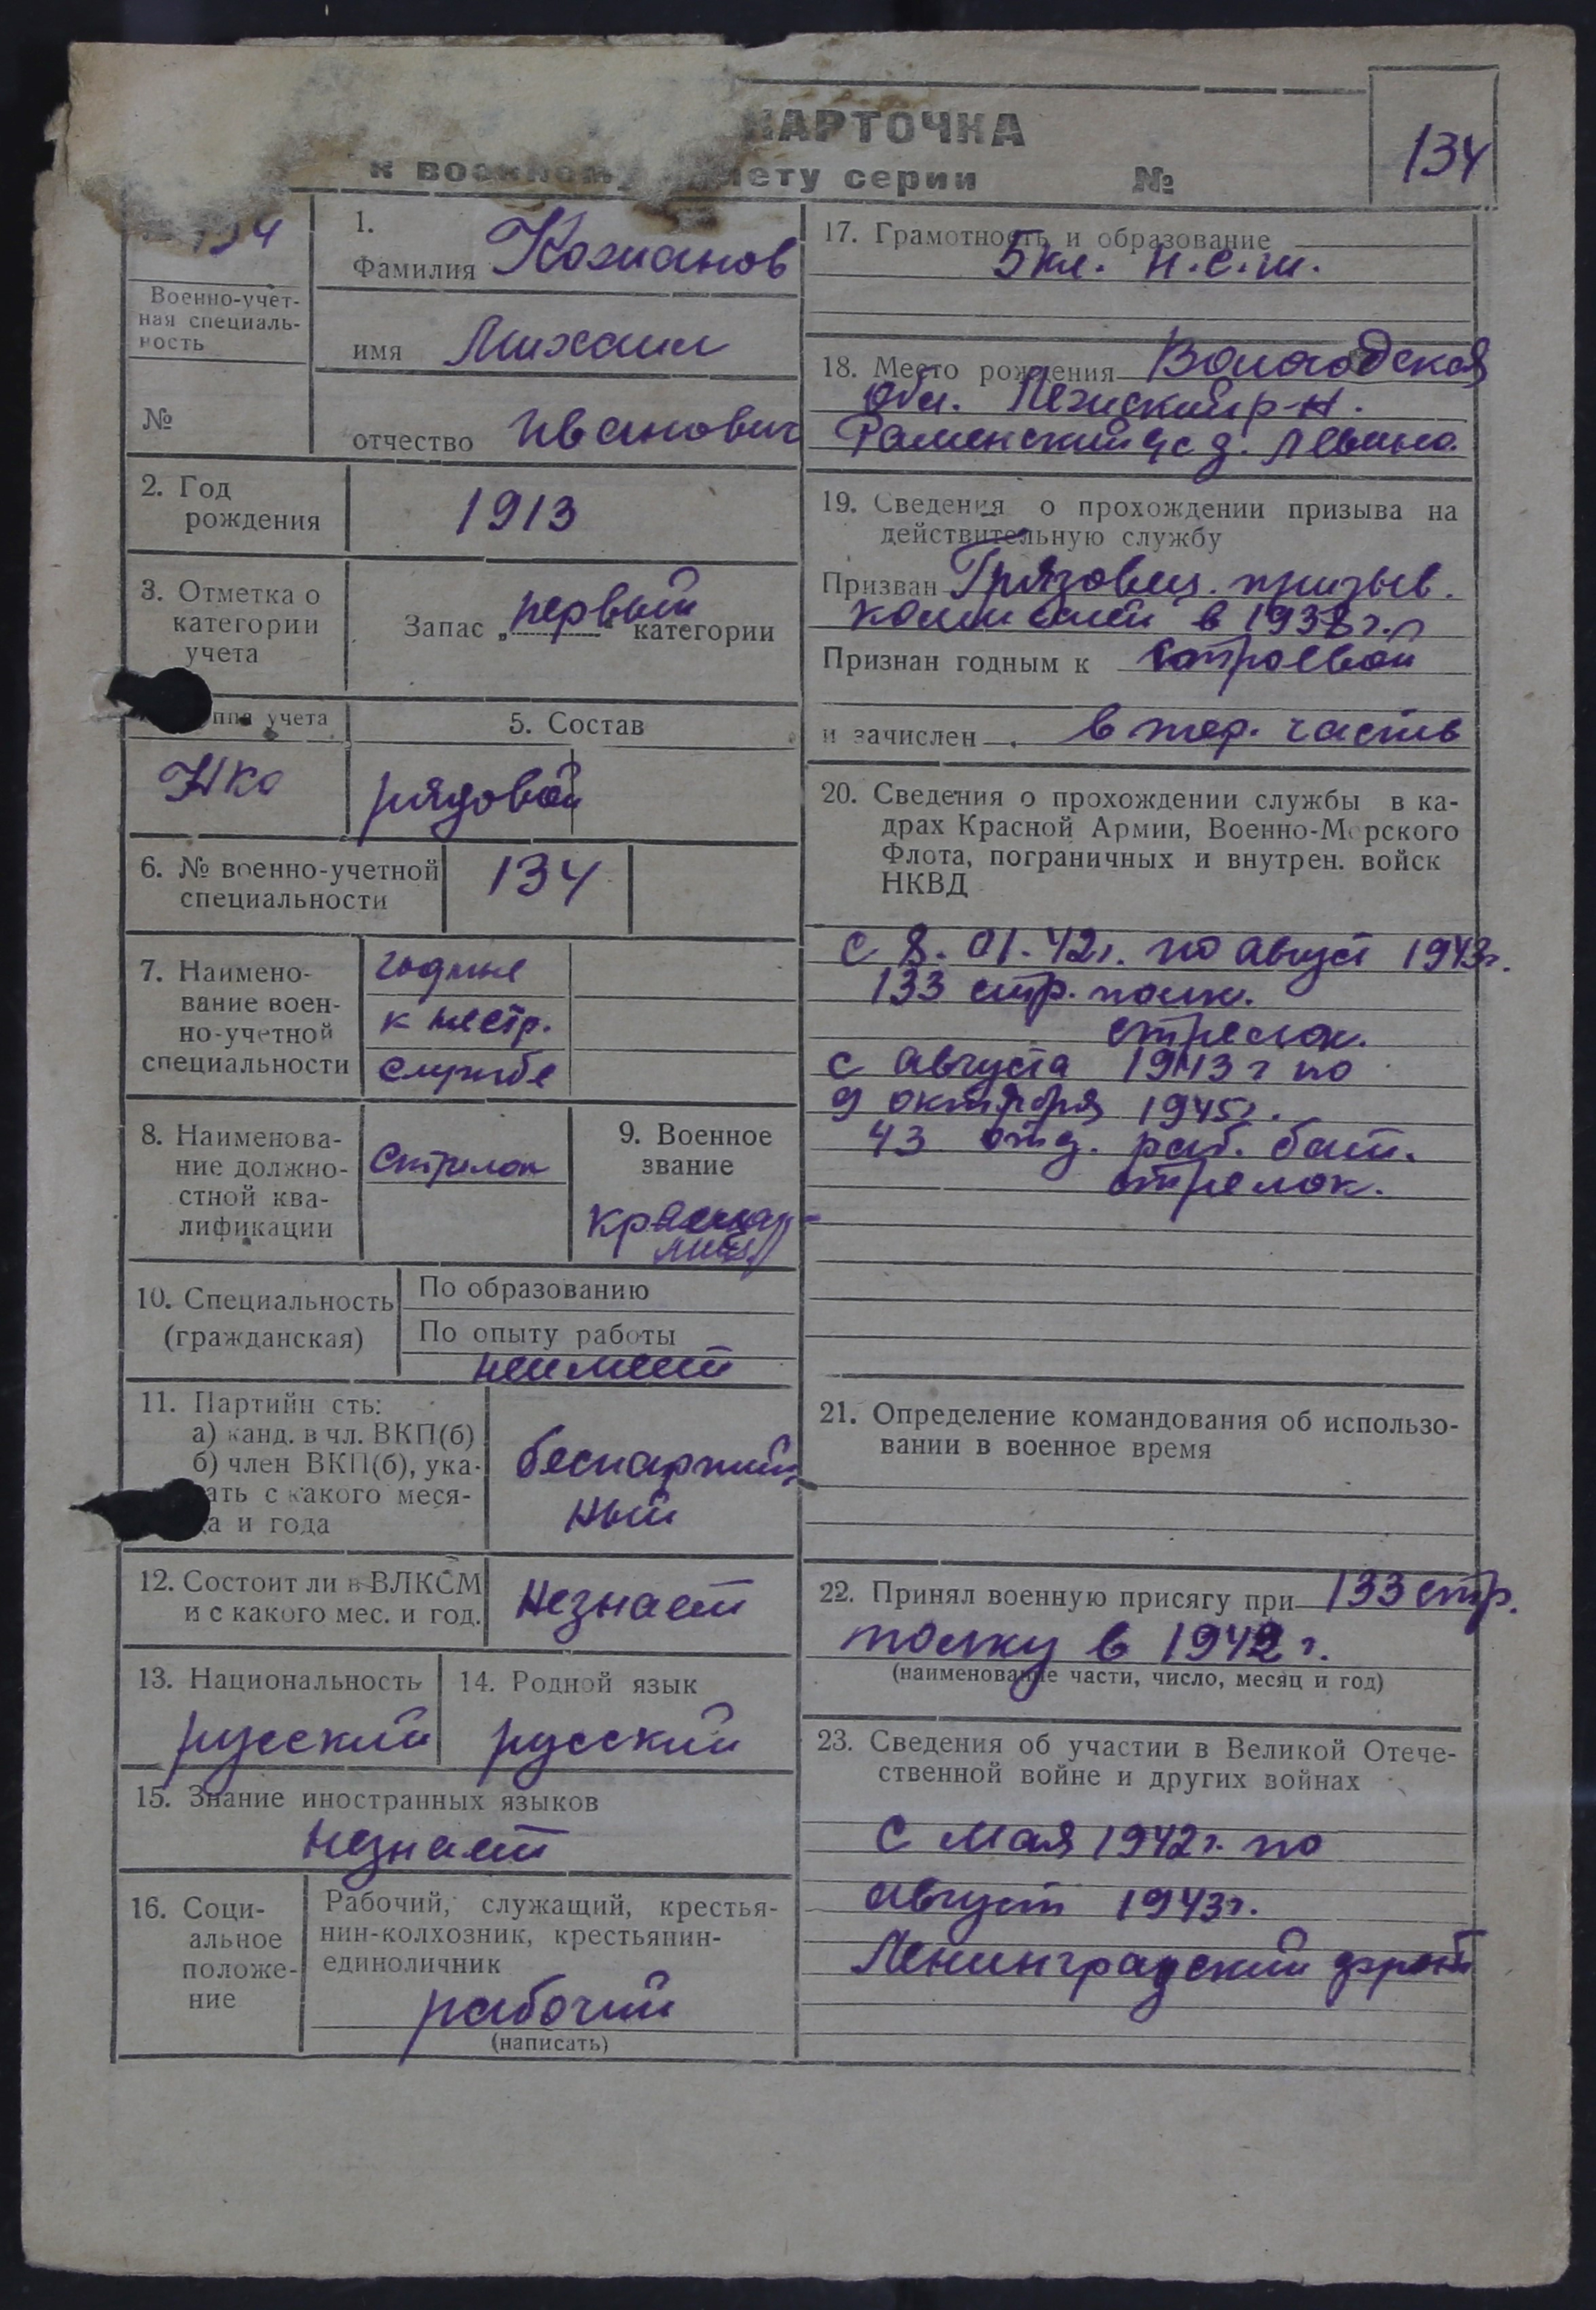 КАРТОЧКА
к военному билету серии №
134
134
Военно-учет-
ная специаль-
ность
№
1.
Фамилия Кожанов
имя Михаил
отчество Иванович
2. Год
рождения
1913
3. Отметка о
категории
учета
Запас „первый“ категории
учета
НКО
5. Состав
рядовой
6. № военно-учетной
специальности
134
7. Наимено-
вание воен-
но-учетной
специальности
годные
к нестр.
службе
8. Наименова-
ние должно-
стной ква-
лификации
Стрелок
9. Военное
звание
10. Специальность
(гражданская)
По образованию
По опыту работы
неимеет
11. Партийн сть:
а) канд. в чл. ВКП(б)
б) член ВКП(б), ука-
ать с какого меся-
ца и года
беспартий-
ный
12. Состоит ли в ВЛКСМ
и с какого мес. и год.
Незнает
13. Национальность
русский
14. Родной язык
русский
15. Знание иностранных языков
незнает
16. Соци-
альное
положе-
ние
Рабочий, служащий, крестья-
нин-колхозник, крестьянин-
единоличник
рабочий
(написать)
17. Грамотность и образование
5 кл. н.с.ш.
18. Место рождения Вологодская
обл. р-н.
Раменский с д. Левино.
19. Сведения о прохождении призыва на
действительную службу
Призван Грязовец. призыв.
комиссией в 1938 г.
Признан годным к строевой
и зачислен в тер. часть
20. Сведения о прохождении службы в ка-
драх Красной Армии, Военно-Морского
Флота, пограничных и внутрен. войск
НКВД
с 8. 01. 42г. по август 1943г.
133 стр. полк.
стрелок.
с августа 1943 г по
9 октября 1945г.
43 отд. раб. бат.
стрелок.
21. Определение командования об использо-
вании в военное время
22. Принял военную присягу при 133 стр.
полку в 1942 г.
(наименование части, число, месяц и год)
23. Сведения об участии в Великой Отече-
ственной войне и других войнах
с мая 1942г. по
август 1943г.
Ленинградский фронт